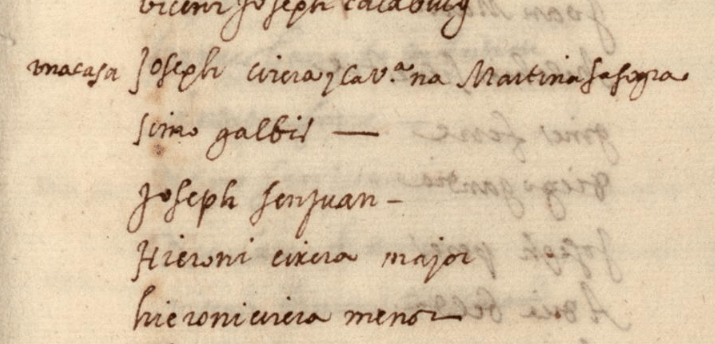 vicent Joseph calabuig
una casa Joseph cirera y la v.ª na Martina sa sogra
simo galbis —
Joseph senjuan -
Hieroni cirera major
hieroni cirera menor